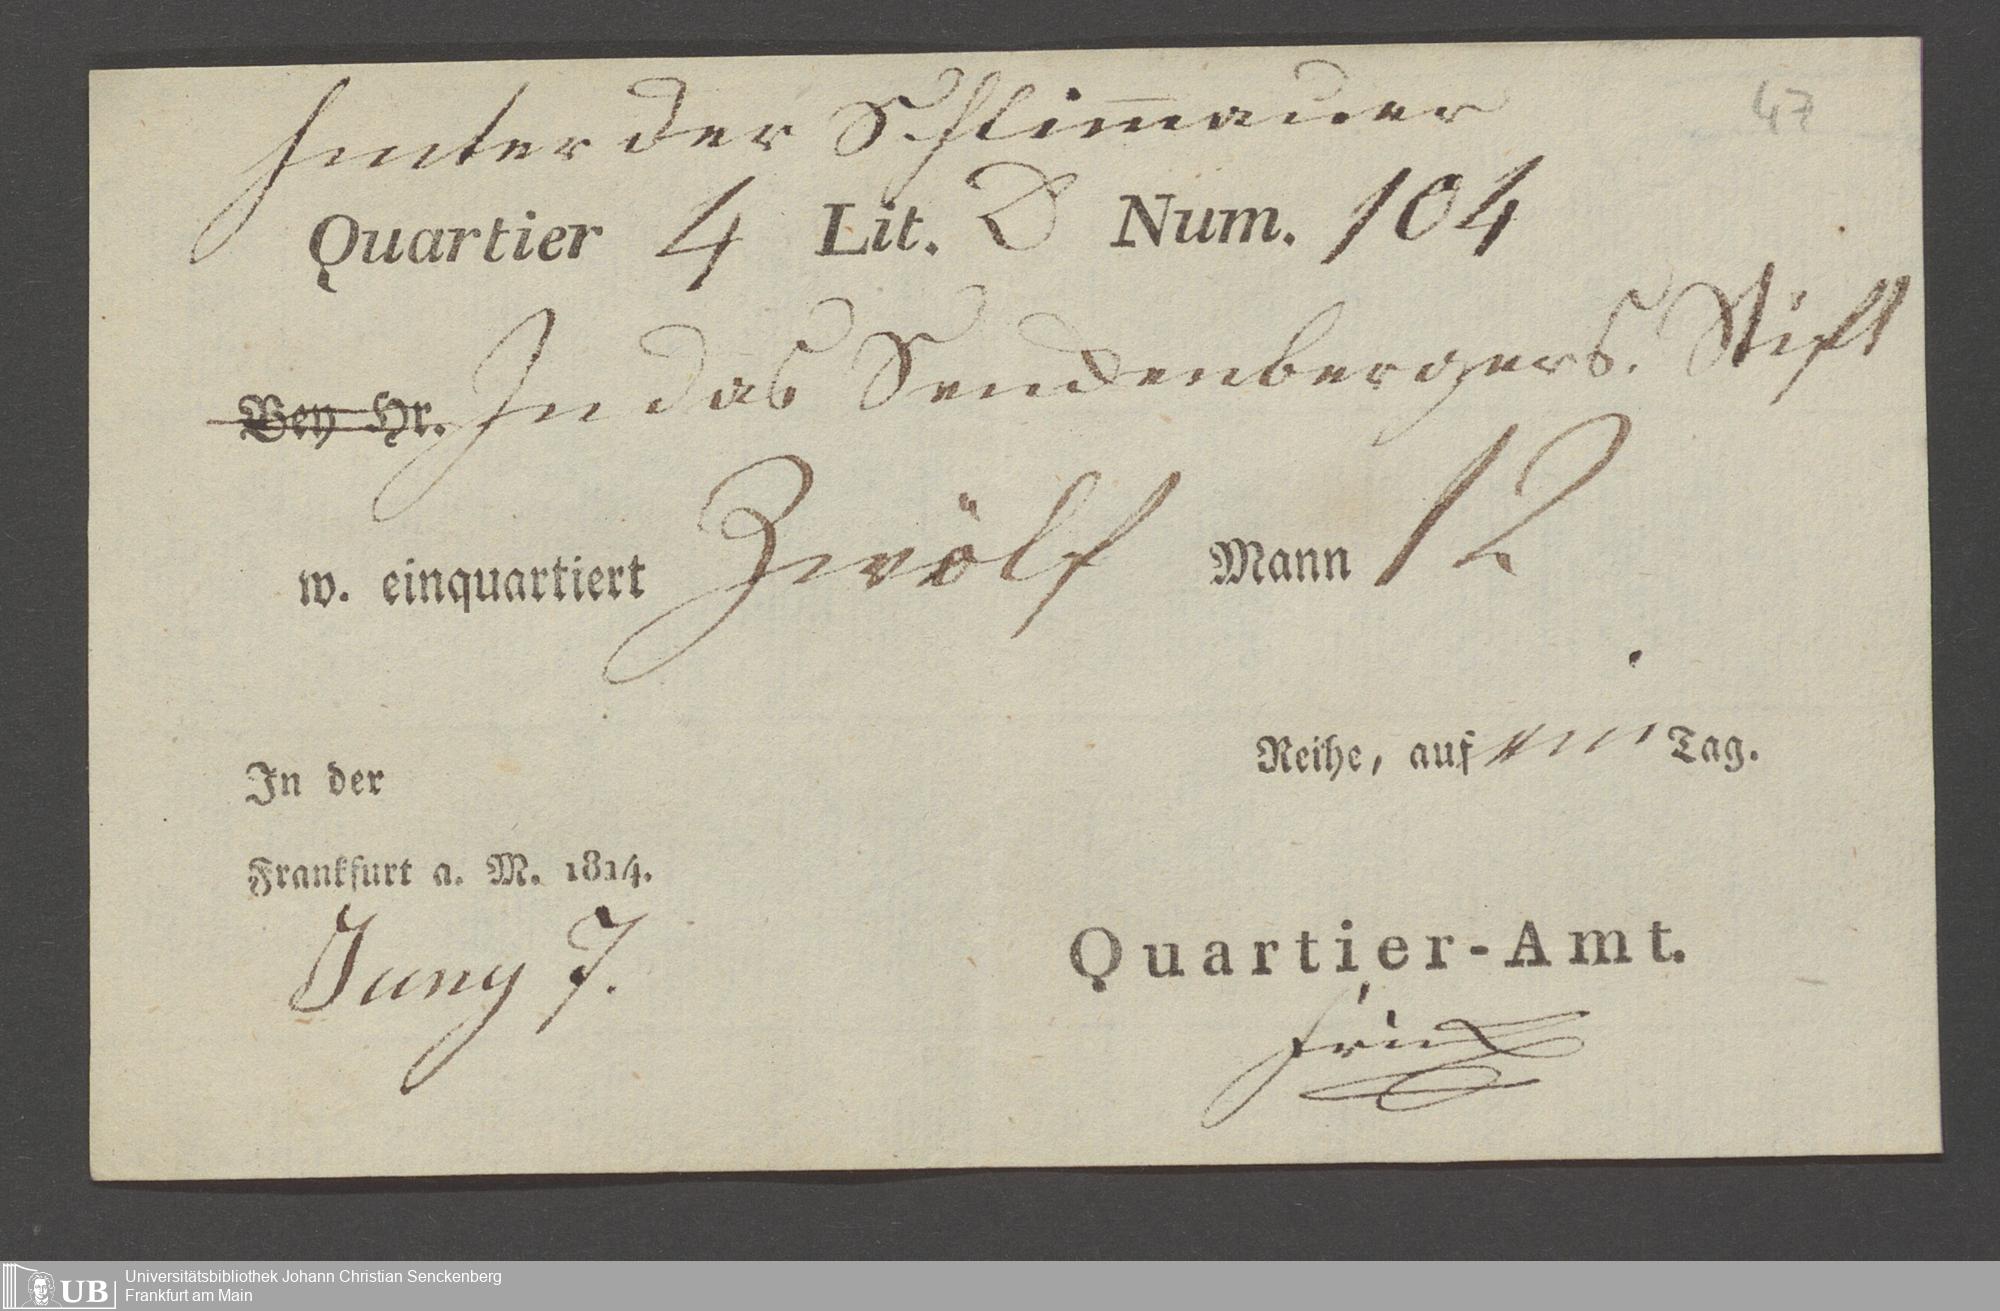 47
Hinter der Schlimmauer
Quartier 4 Lit. D Num. 104
Bey Hr. In das Sendenbergers. Stift
w. einquartiert Zwölf Mann 12
In der Reihe, auf ein Tag.
Frankfurt a. M. 1814.
Juny 7.
Quartier-Amt.
UB Universitätsbibliothek Johann Christian Senckenberg
Frankfurt am Main